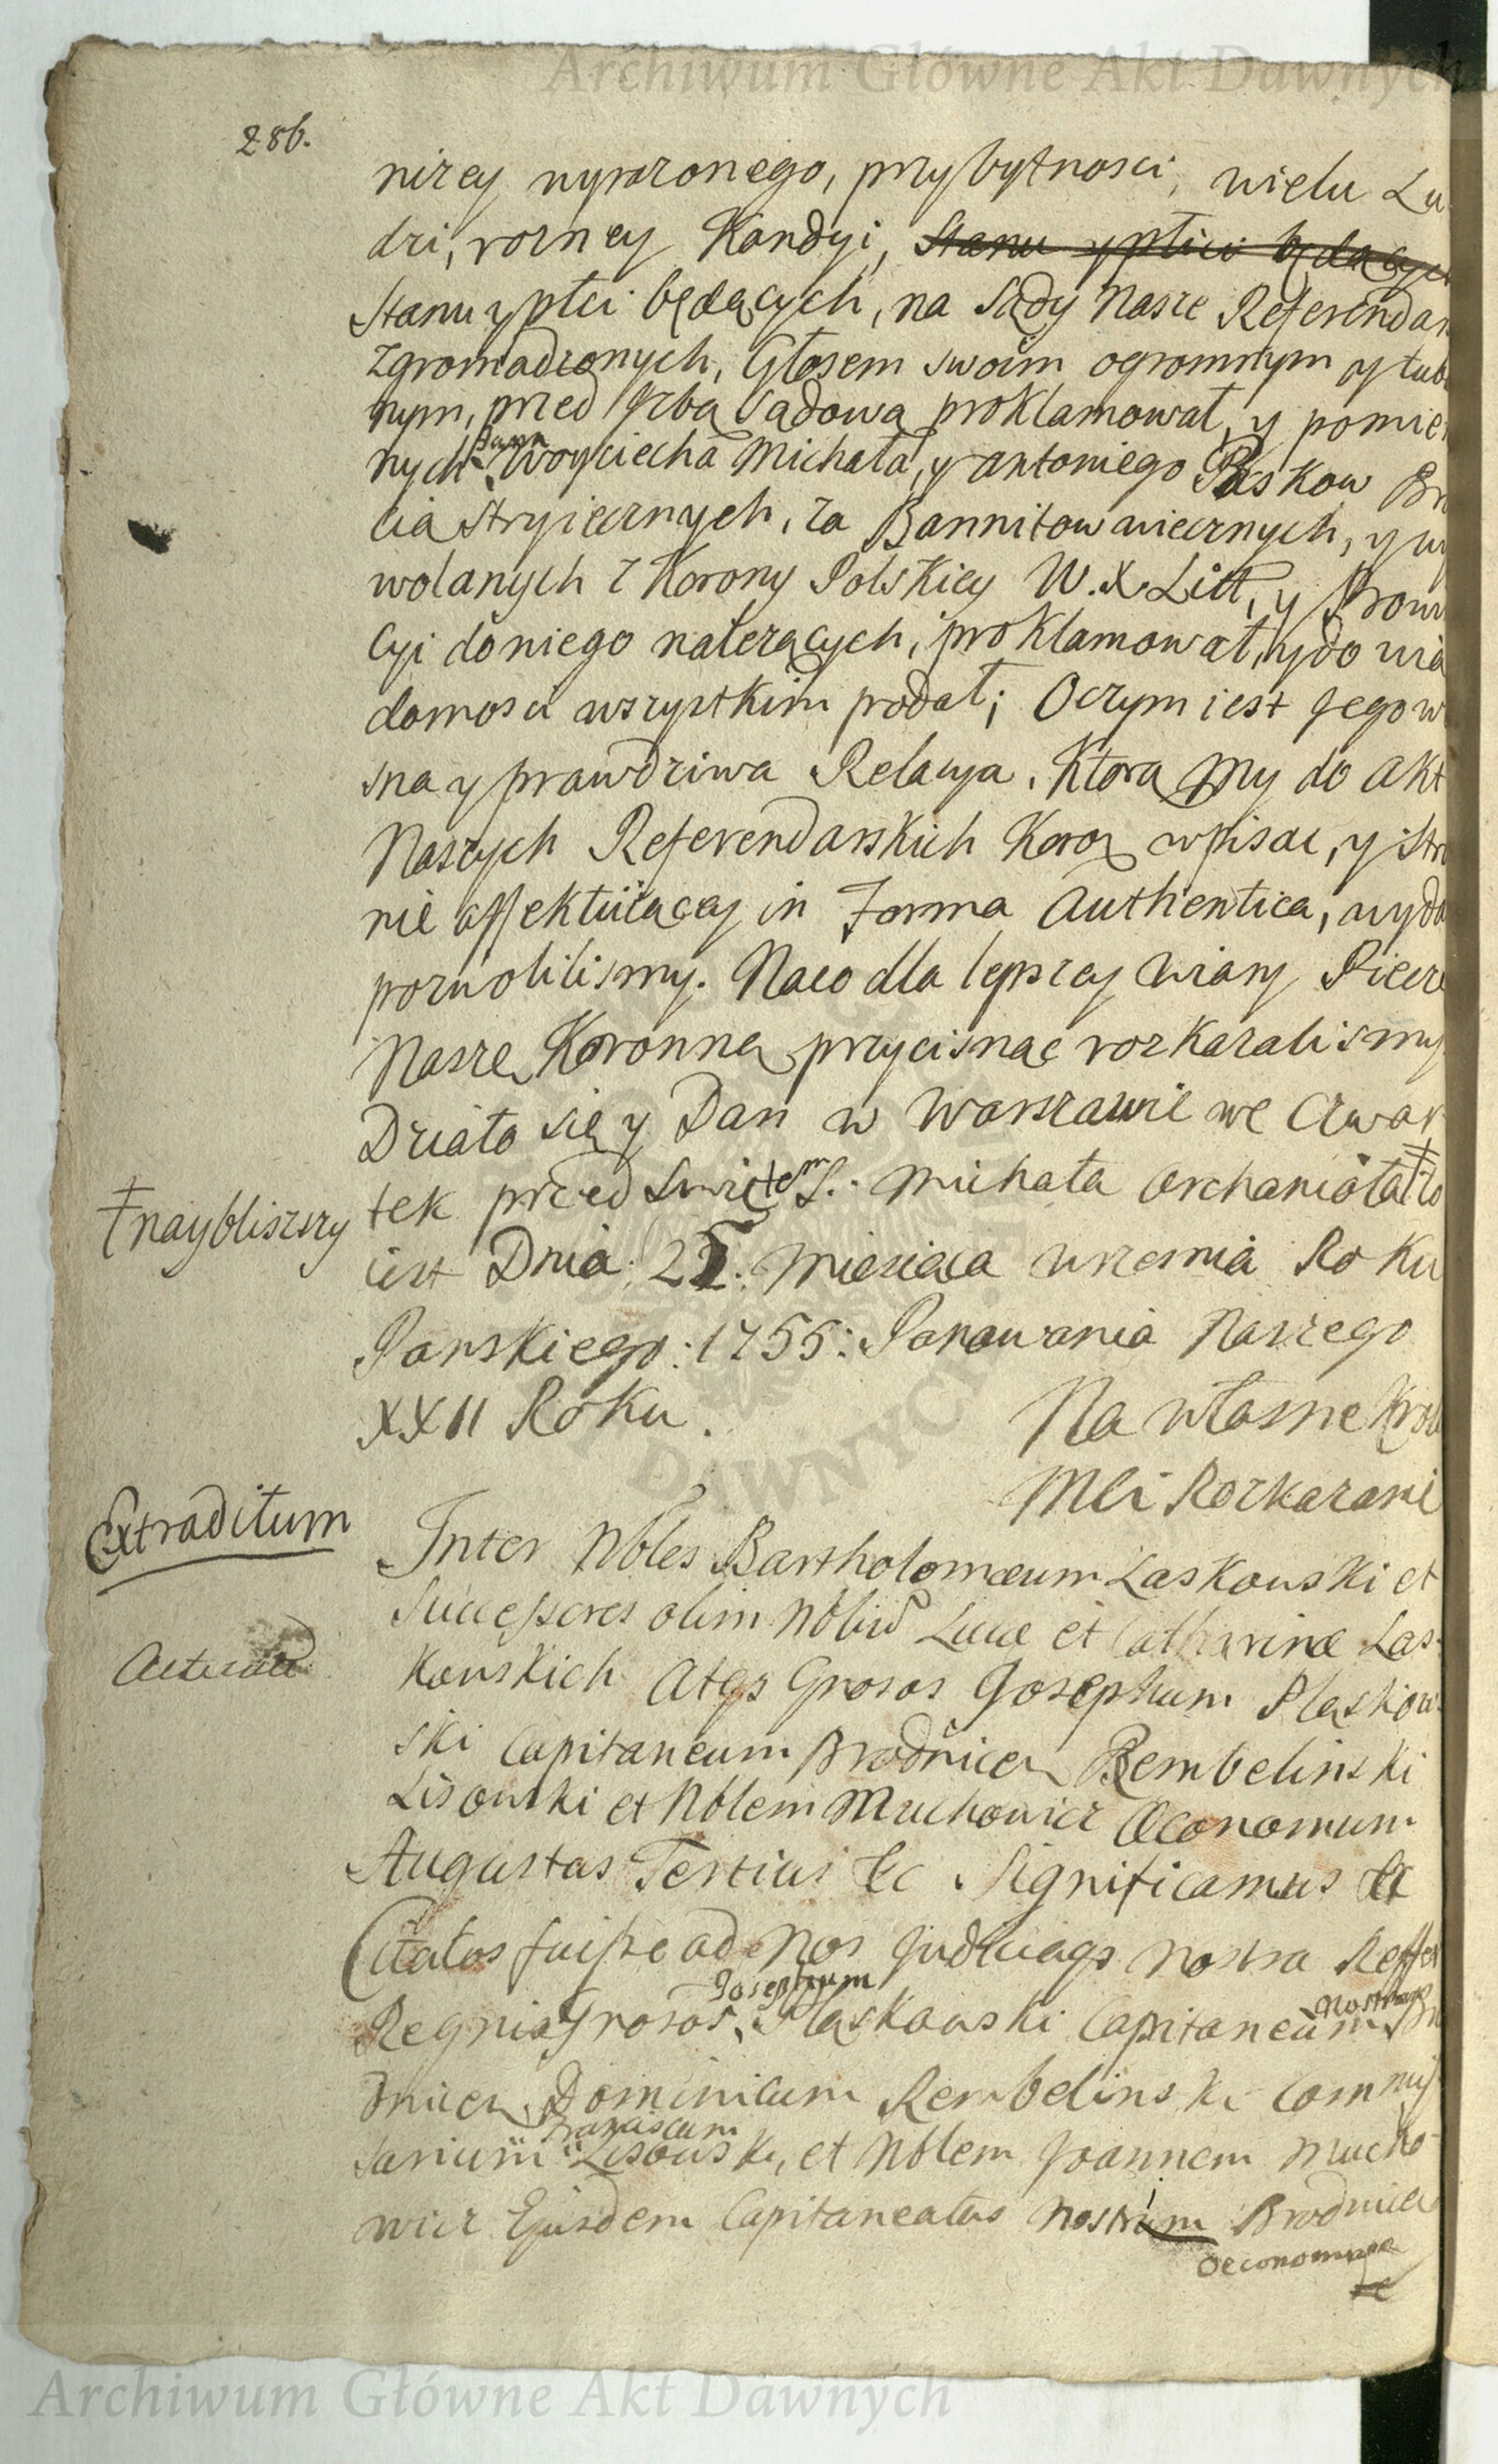 Archiwum Główne Akt Dawnych
286.
nizey wyrazonego, przybytnosci, wielu Lu
dzi, rozney Kondyi, Stanu y płici będących
Stanu y płci będących, na Sądy Nasze Referendar
Zgromadzonych, Głosem swoim ogromnym y tub
nym, przed Jzbą Sadową proklamował, y pomie
nych Woyciecha Michała, y Antoniego Paskow Br
cia Stryiecznych, za Bannitow wiecznych, y wy
wolanych z Korony Polskiey W. X. Litt, y Prowi
cyi do niego nalezących, proklamował, y do wia
domosci wszystkim podał; Oczym iest Jego w
sna y prawdziwa Relacya. Ktorą My do Akt
Naszych Referendarskich Koron wpisac, y Stro
nie affektuiącey in Forma Authentica, wyda
pozwolilismy. Naco dla lepszey wiary Piecze
Naszę Koronną przycisnąc rozkazalismy
Działo się y Dan w Warszawie we Czwar
tek przed Swiętem S. Michała Archanioła ‡ to
† naybliszszy
iest Dnia: 25. Miesiąca wrzesnia Roku
Panskiego: 1755: Panowania Naszego
XXII Roku.
Na własne Krol
Mci Rozkazanie
Extraditum
Inter Nbles Bartholomæum Laskowski et
Successores olim Nbliū Lucæ et Catharinæ Las-
kowskich Atqz Gnosos Josephum Plaskow
ski Capitaneum Brodnicen Rembelinski
Lisowski et Nblem Muchowicz Oeconomum
Augustus Tertius &c Significamus &c
Citatos fuisse ad Nos Judiciaqz nostra Reffer
Regni Gnosos Josephum Plaskowski Capitaneum nostrum Bro
dnicen Dominicum Rembelinski Commis
sarium Franciscum Lisowski, et Nblem Joannem Mucho
wicz Ejusdem Capitaneatus Nostri Brodnicen
Oeconomum
Archiwum Główne Akt Dawnych